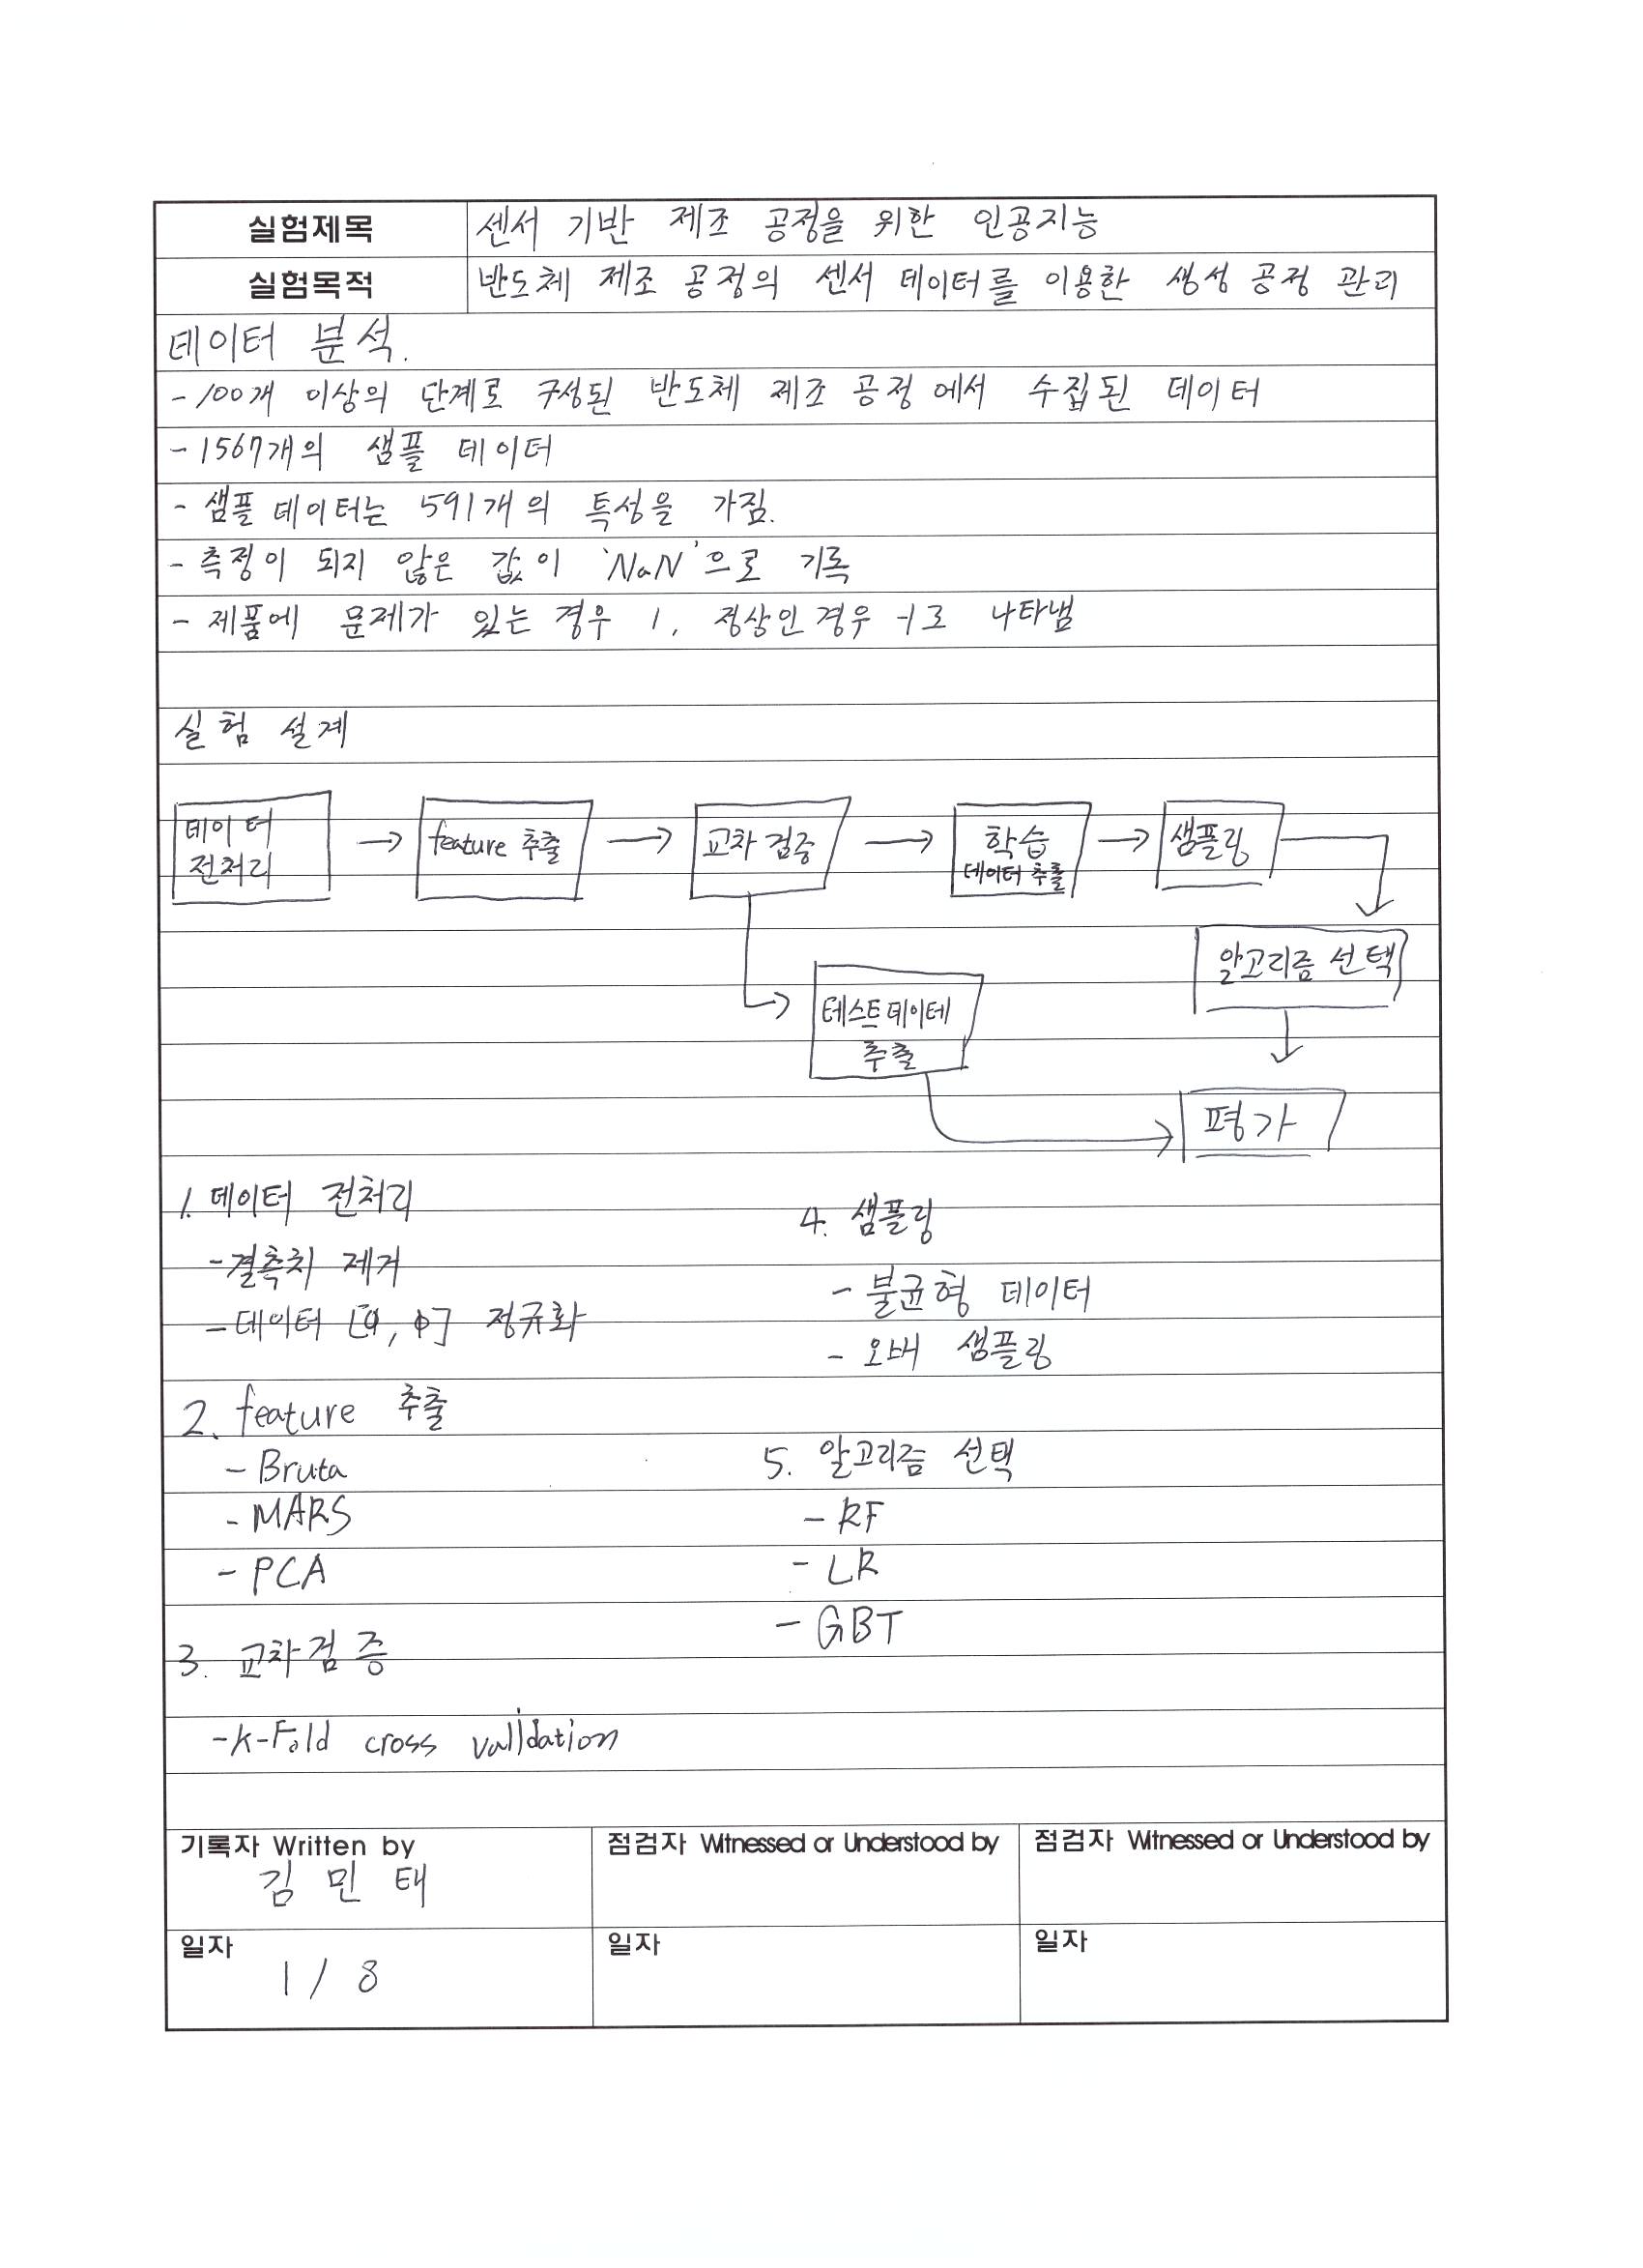 실험제목 센서 기반 제조 공정을 위한 인공지능
실험목적 반도체 제조 공정의 센서 데이터를 이용한 생성 공정 관리
데이터 분석.
- 100개 이상의 단계로 구성된 반도체 제조 공정에서 수집된 데이터
- 1567개의 샘플 데이터
- 샘플 데이터는 591개의 특성을 가짐.
- 측정이 되지 않은 값이 'NaN'으로 기록
- 제품에 문제가 있는 경우 1, 정상인 경우 -1로 나타냄
실험 설계
데이터
전처리
feature 추출
교차 검증
학습
데이터 추출
샘플링
알고리즘 선택
테스트 데이테
추출
평가
1. 데이터 전처리
- 결측치 제거
- 데이터 정규화
2. feature 추출
- Bruta
- MARS
- PCA
3. 교차검증
- k-Fold cross validation
4. 샘플링
- 불균형 데이터
- 오버 샘플링
5. 알고리즘 선택
- RF
- LR
- GBT
기록자 Written by
김민태
일자
1 / 8
점검자 Witnessed or Understood by
일자
점검자 Witnessed or Understood by
일자